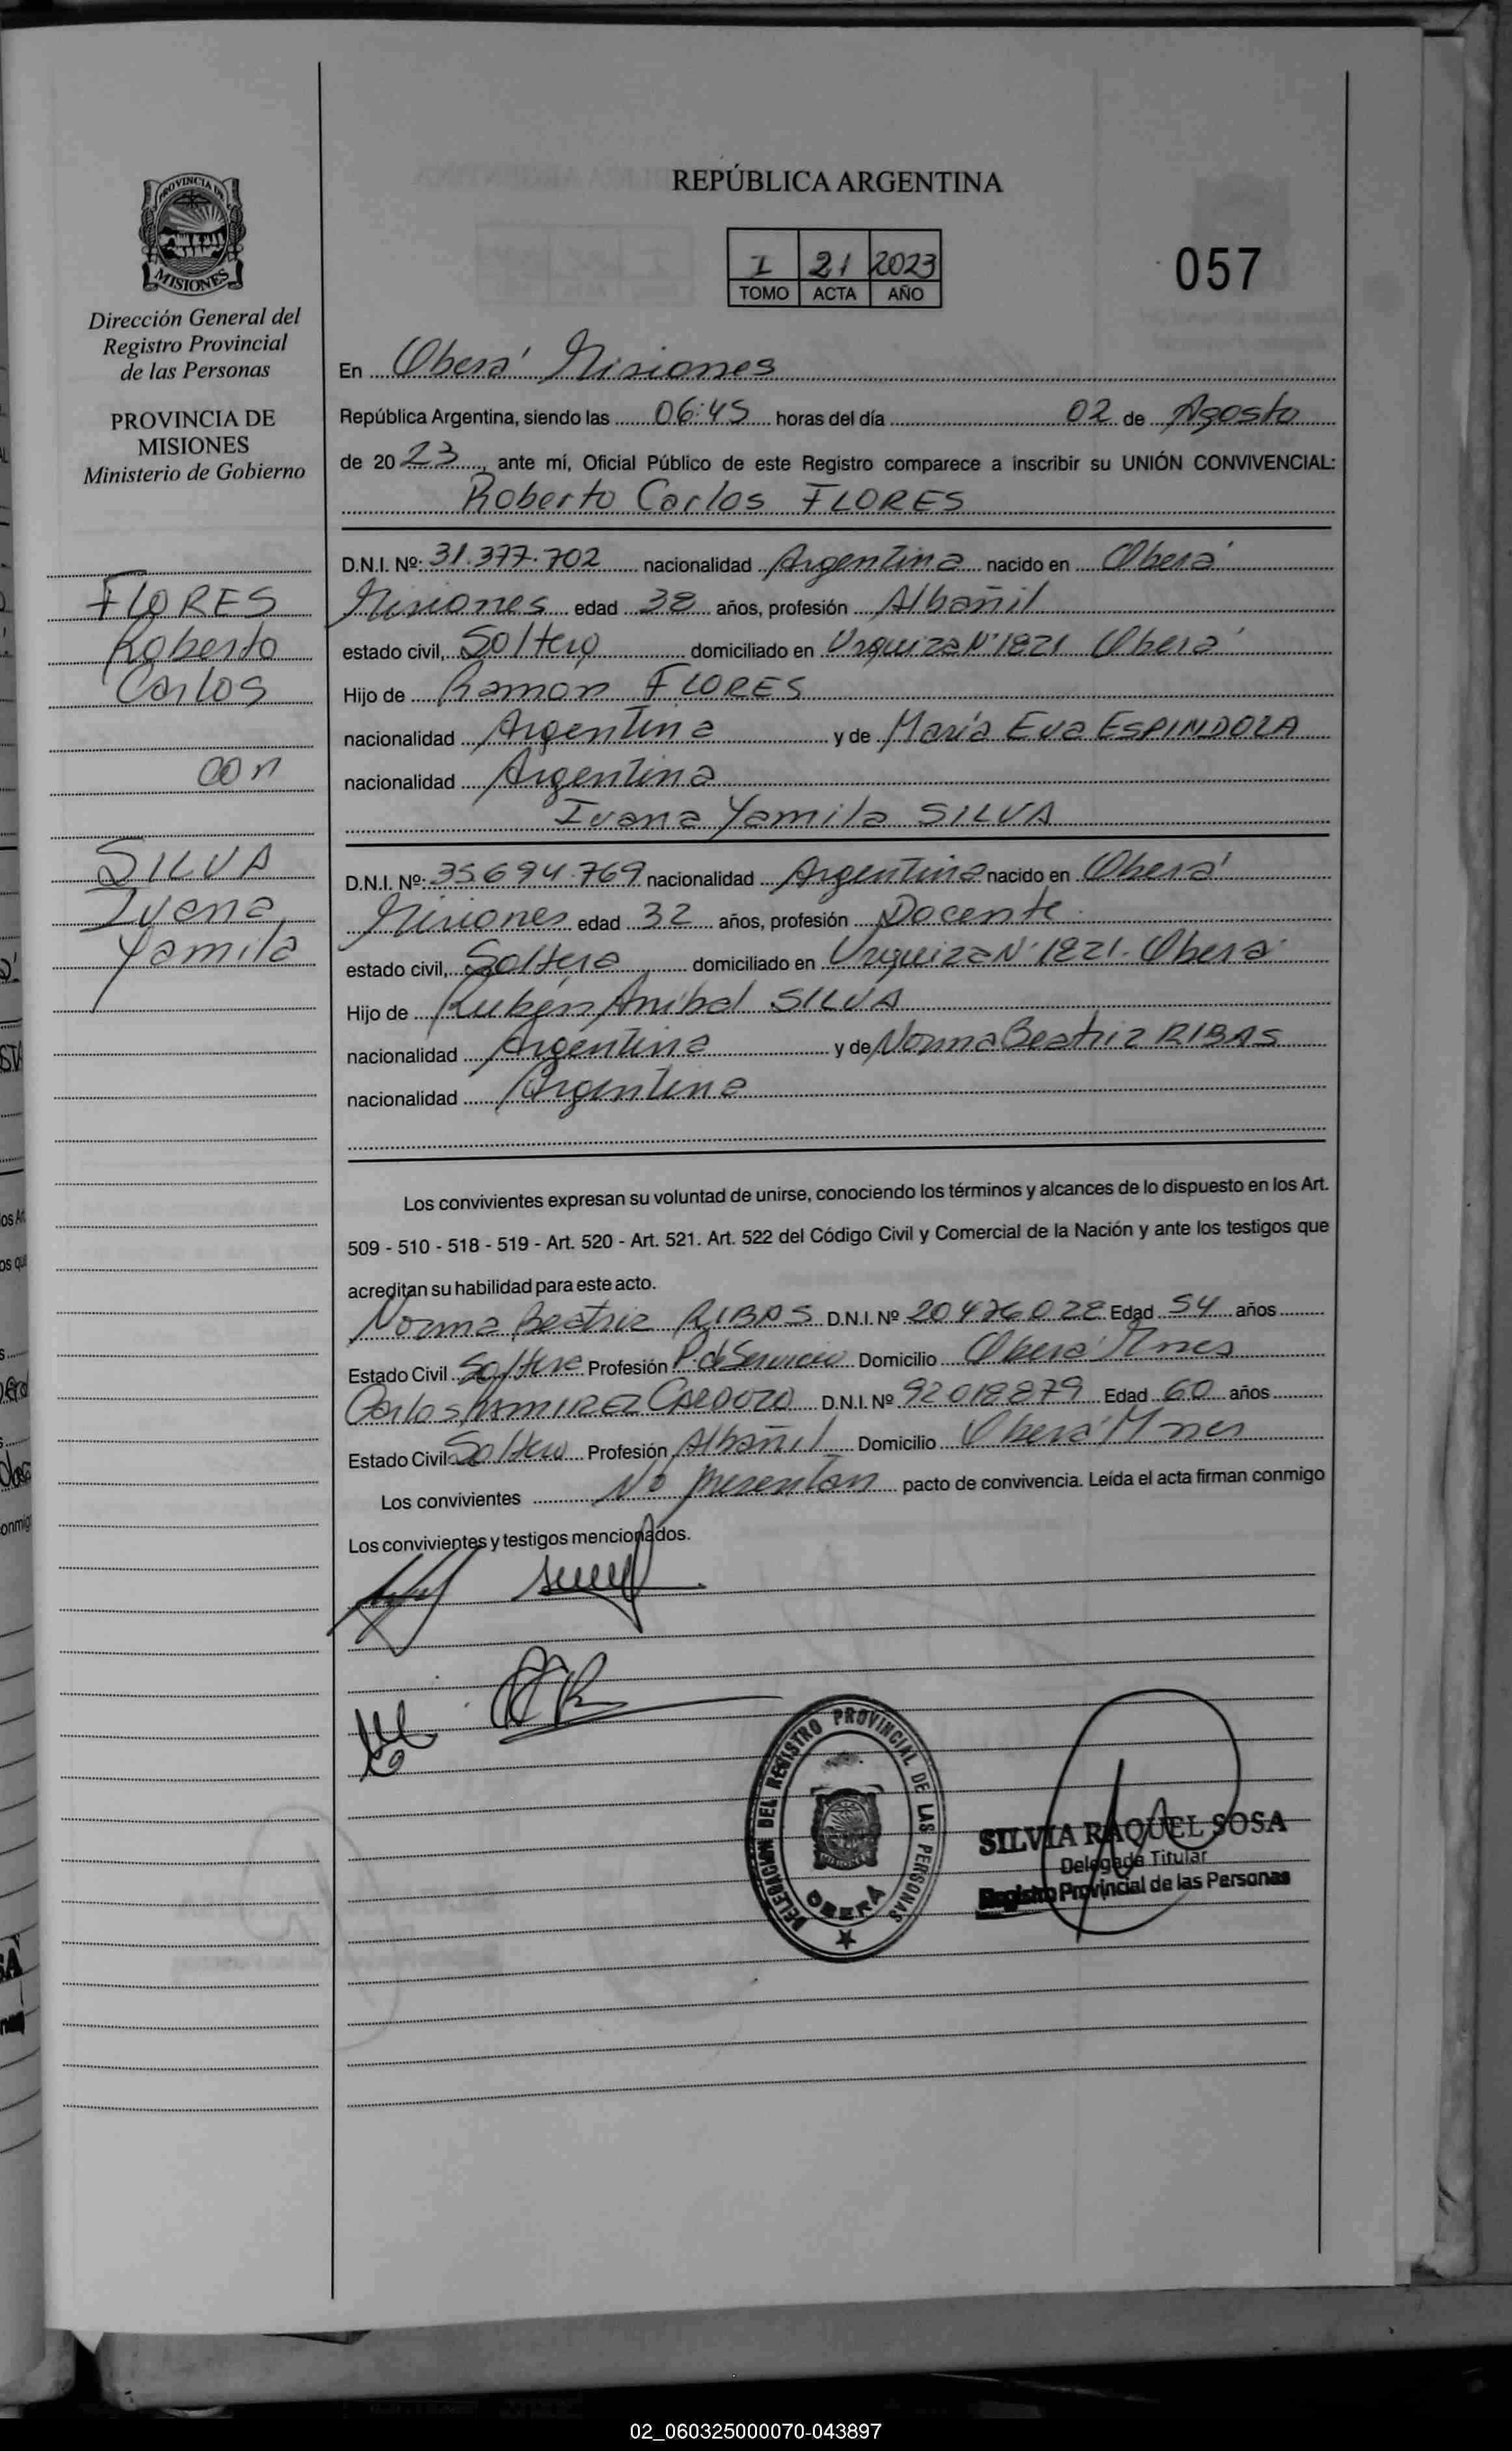 REPÚBLICA ARGENTINA
PROVINCIA DE
MISIONES
I 21 2023
TOMO ACTA AÑO
057
Dirección General del
Registro Provincial
de las Personas
PROVINCIA DE
MISIONES
Ministerio de Gobierno
FLORES
Roberto
Carlos
con
SILVA
Ivana
Yamila
En Oberá Misiones
República Argentina, siendo las 06:45 horas del día 02 de Agosto
de 2023, ante mí, Oficial Público de este Registro comparece a inscribir su UNIÓN CONVIVENCIAL:
Roberto Carlos FLORES
D.N.I. Nº: 31.377.702 nacionalidad Argentina nacido en Oberá
Misiones edad 38 años, profesión Albañil
estado civil, Soltero domiciliado en Urquiza Nº 1821 Oberá
Hijo de Ramon FLORES
nacionalidad Argentina y de María Eva ESPINDOLA
nacionalidad Argentina
Ivana Yamila SILVA
D.N.I. Nº: 35694.769 nacionalidad Argentina nacido en Oberá
Misiones edad 32 años, profesión Docente
estado civil, Soltera domiciliado en Urquiza Nº 1821. Oberá
Hijo de Rubén Aníbal SILVA
nacionalidad Argentina y de Norma Beatriz RIBAS
nacionalidad Argentina
Los convivientes expresan su voluntad de unirse, conociendo los términos y alcances de lo dispuesto en los Art.
509 - 510 - 518 - 519 - Art. 520 - Art. 521. Art. 522 del Código Civil y Comercial de la Nación y ante los testigos que
acreditan su habilidad para este acto.
Norma Beatriz RIBAS D.N.I. Nº 20476028 Edad 54 años
Estado Civil Soltera Profesión P. de Servicio Domicilio Oberá Mnes
Carlos RAMIREZ CARDOZO D.N.I. Nº 92018879 Edad 60 años
Estado Civil Soltero Profesión Albañil Domicilio Oberá Mnes
Los convivientes No presentan pacto de convivencia. Leída el acta firman conmigo
Los convivientes y testigos mencionados.
DELEGACION DEL REGISTRO PROVINCIAL DE LAS PERSONAS
OBERÁ
SILVIA RAQUEL SOSA
Delegada Titular
Registro Provincial de las Personas
02_060325000070-043897